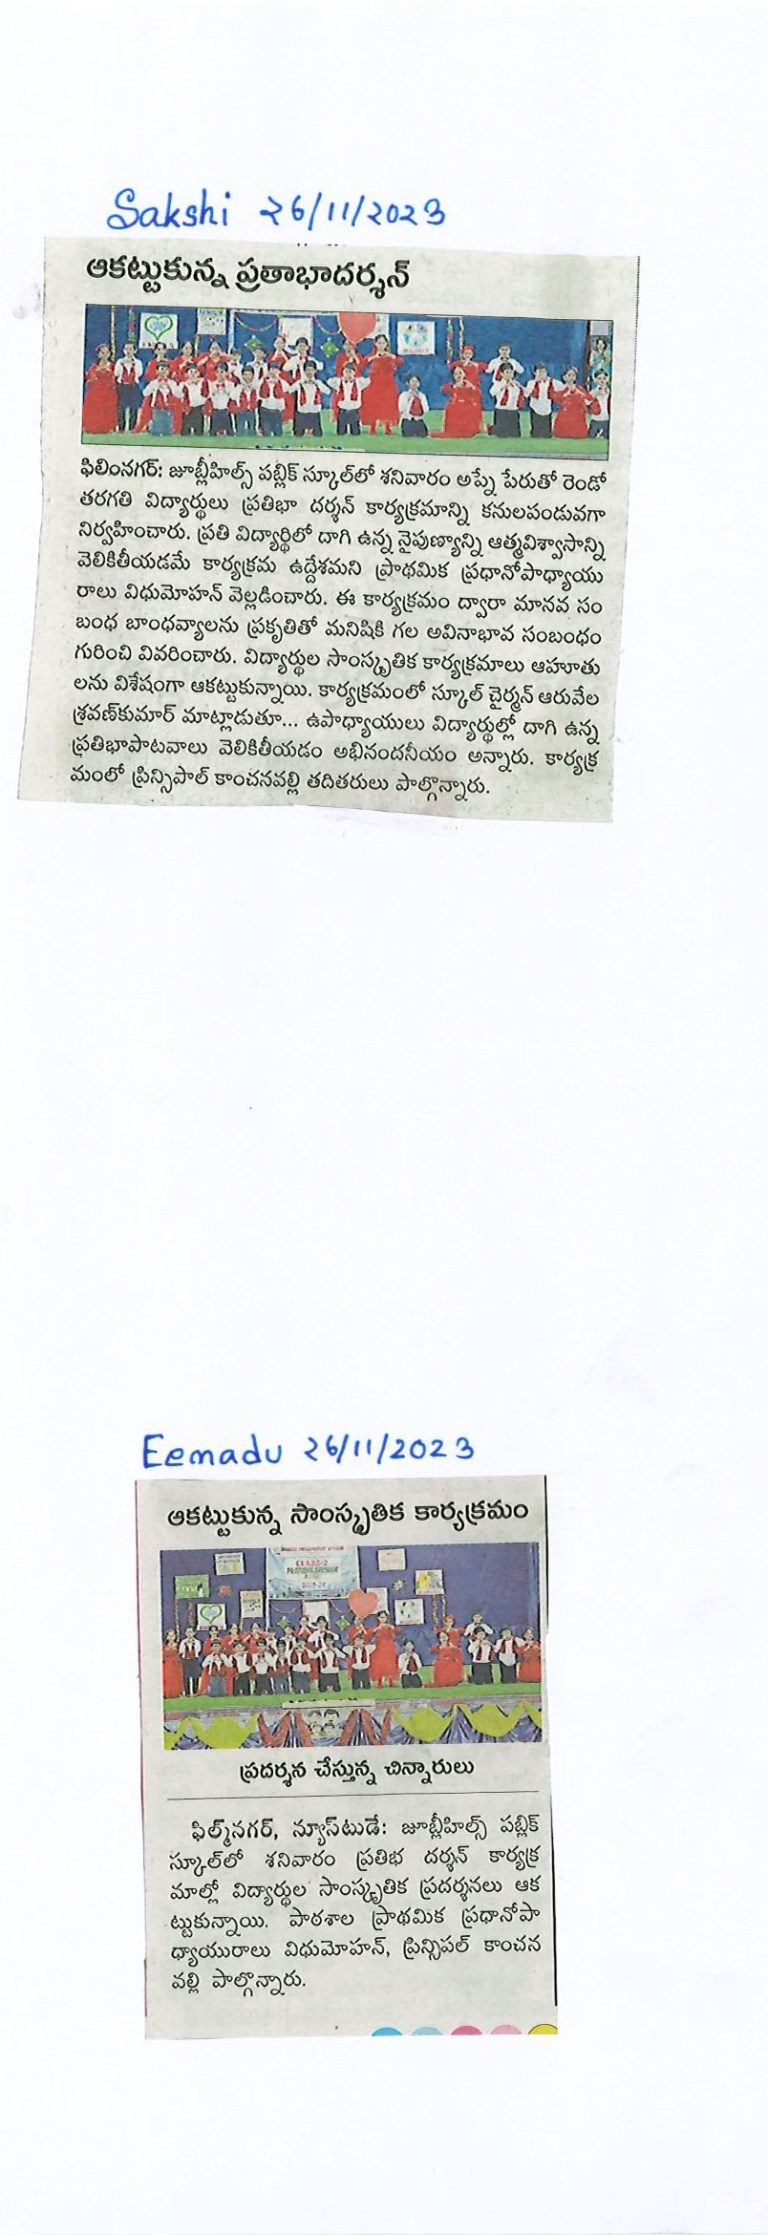 Sakshi 26/11/2023
ఆకట్టుకున్న ప్రతాభాదర్శన్
ఫిలింనగర్: జూబ్లీహిల్స్ పబ్లిక్ స్కూల్‌లో శనివారం అప్నే పేరుతో రెండో
తరగతి విద్యార్థులు ప్రతిభా దర్శన్ కార్యక్రమాన్ని కనులపండువగా
నిర్వహించారు. ప్రతి విద్యార్థిలో దాగి ఉన్న నైపుణ్యాన్ని ఆత్మవిశ్వాసాన్ని
వెలికితీయడమే కార్యక్రమ ఉద్దేశమని ప్రాథమిక ప్రధానోపాధ్యాయు
రాలు విధుమోహన్ వెల్లడించారు. ఈ కార్యక్రమం ద్వారా మానవ సం
బంధ బాంధవ్యాలను ప్రకృతితో మనిషికి గల అవినాభావ సంబంధం
గురించి వివరించారు. విద్యార్థుల సాంస్కృతిక కార్యక్రమాలు ఆహూతు
లను విశేషంగా ఆకట్టుకున్నాయి. కార్యక్రమంలో స్కూల్ చైర్మన్ ఆరువేల
శ్రవణ్‌కుమార్ మాట్లాడుతూ... ఉపాధ్యాయులు విద్యార్థుల్లో దాగి ఉన్న
ప్రతిభాపాటవాలు వెలికితీయడం అభినందనీయం అన్నారు. కార్యక్ర
మంలో ప్రిన్సిపాల్ కాంచనవల్లి తదితరులు పాల్గొన్నారు.
Eemadu 26/11/2023
ఆకట్టుకున్న సాంస్కృతిక కార్యక్రమం
CLASS-2
ప్రదర్శన చేస్తున్న చిన్నారులు
ఫిల్మ్‌నగర్, న్యూస్‌టుడే: జూబ్లీహిల్స్ పబ్లిక్
స్కూల్‌లో శనివారం ప్రతిభ దర్శన్ కార్యక్ర
మాల్లో విద్యార్థుల సాంస్కృతిక ప్రదర్శనలు ఆక
ట్టుకున్నాయి. పాఠశాల ప్రాథమిక ప్రధానోపా
ధ్యాయురాలు విధుమోహన్, ప్రిన్సిపల్ కాంచన
వల్లి పాల్గొన్నారు.